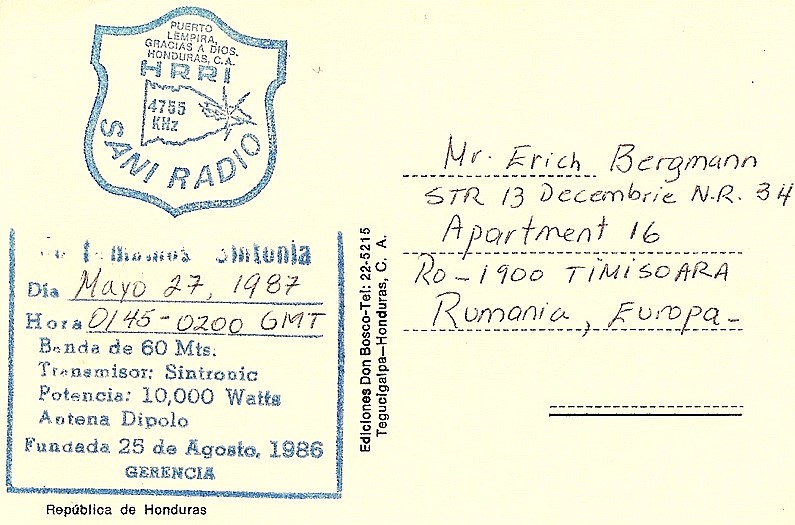 PUERTO
LEMPIRA,
GRACIAS A DIOS.
HONDURAS, C.A.
HRRI
4755
KHz
SANI RADIO
Sintonia
Dia Mayo 27, 1987
Hora 0145-0200 GMT
Banda de 60 Mts.
Transmisor: Sintronic
Potencia: 10,000 Watts
Antena Dipolo
Fundada 25 de Agosto, 1986
GERENCIA
República de Honduras
Ediciones Don Bosco-Tel: 22-5215
Tegucigalpa-Honduras, C. A.
Mr. Erich Bergmann
STR 13 Decembrie N.R. 34
Apartment 16
RO-1900 TIMISOARA
Rumania, Europa-